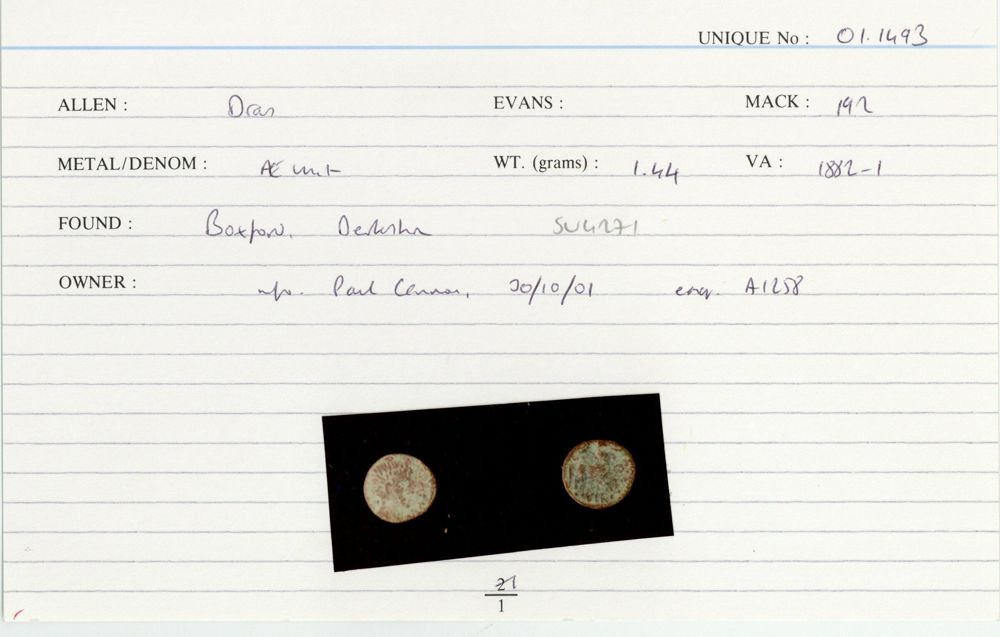 UNIQUE No : 01.1493
ALLEN : Dras EVANS : MACK : 192
METAL/DENOM : Æ unit WT. (grams) : 1.44 VA : 1882-1
FOUND : Boxford. Berkshire SU4271
OWNER : info. Paul Cannon, 30/10/01 enq. A1258
21
1